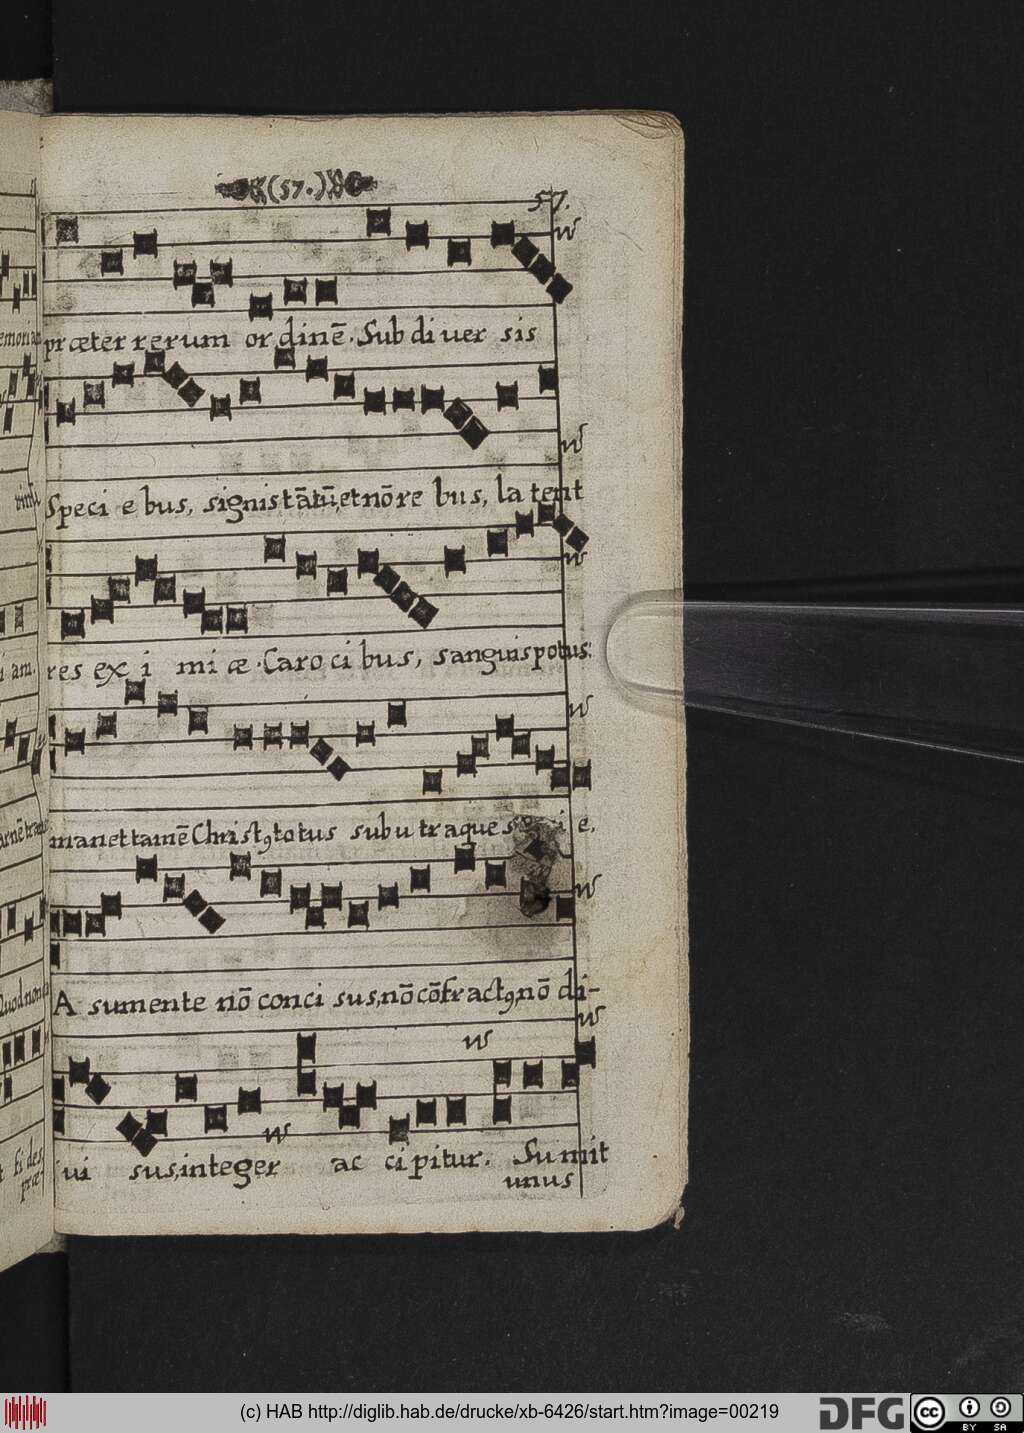 (57.)
57.
præter rerum or dinē. Sub di ver sis
Speci e bus, signis tātū, et nō re bus, la tent
res ex i mi æ. Caro ci bus, sanguis potus:
manet tamē Christ9 totus sub u traque e.
A sumente nō conci sus, nō cōfract9, nō di-
vi sus, integer ac ci pitur. Sumit
unus
(c) HAB http://diglib.hab.de/drucke/xb-6426/start.htm?image=00219
DFG
cc
BY SA